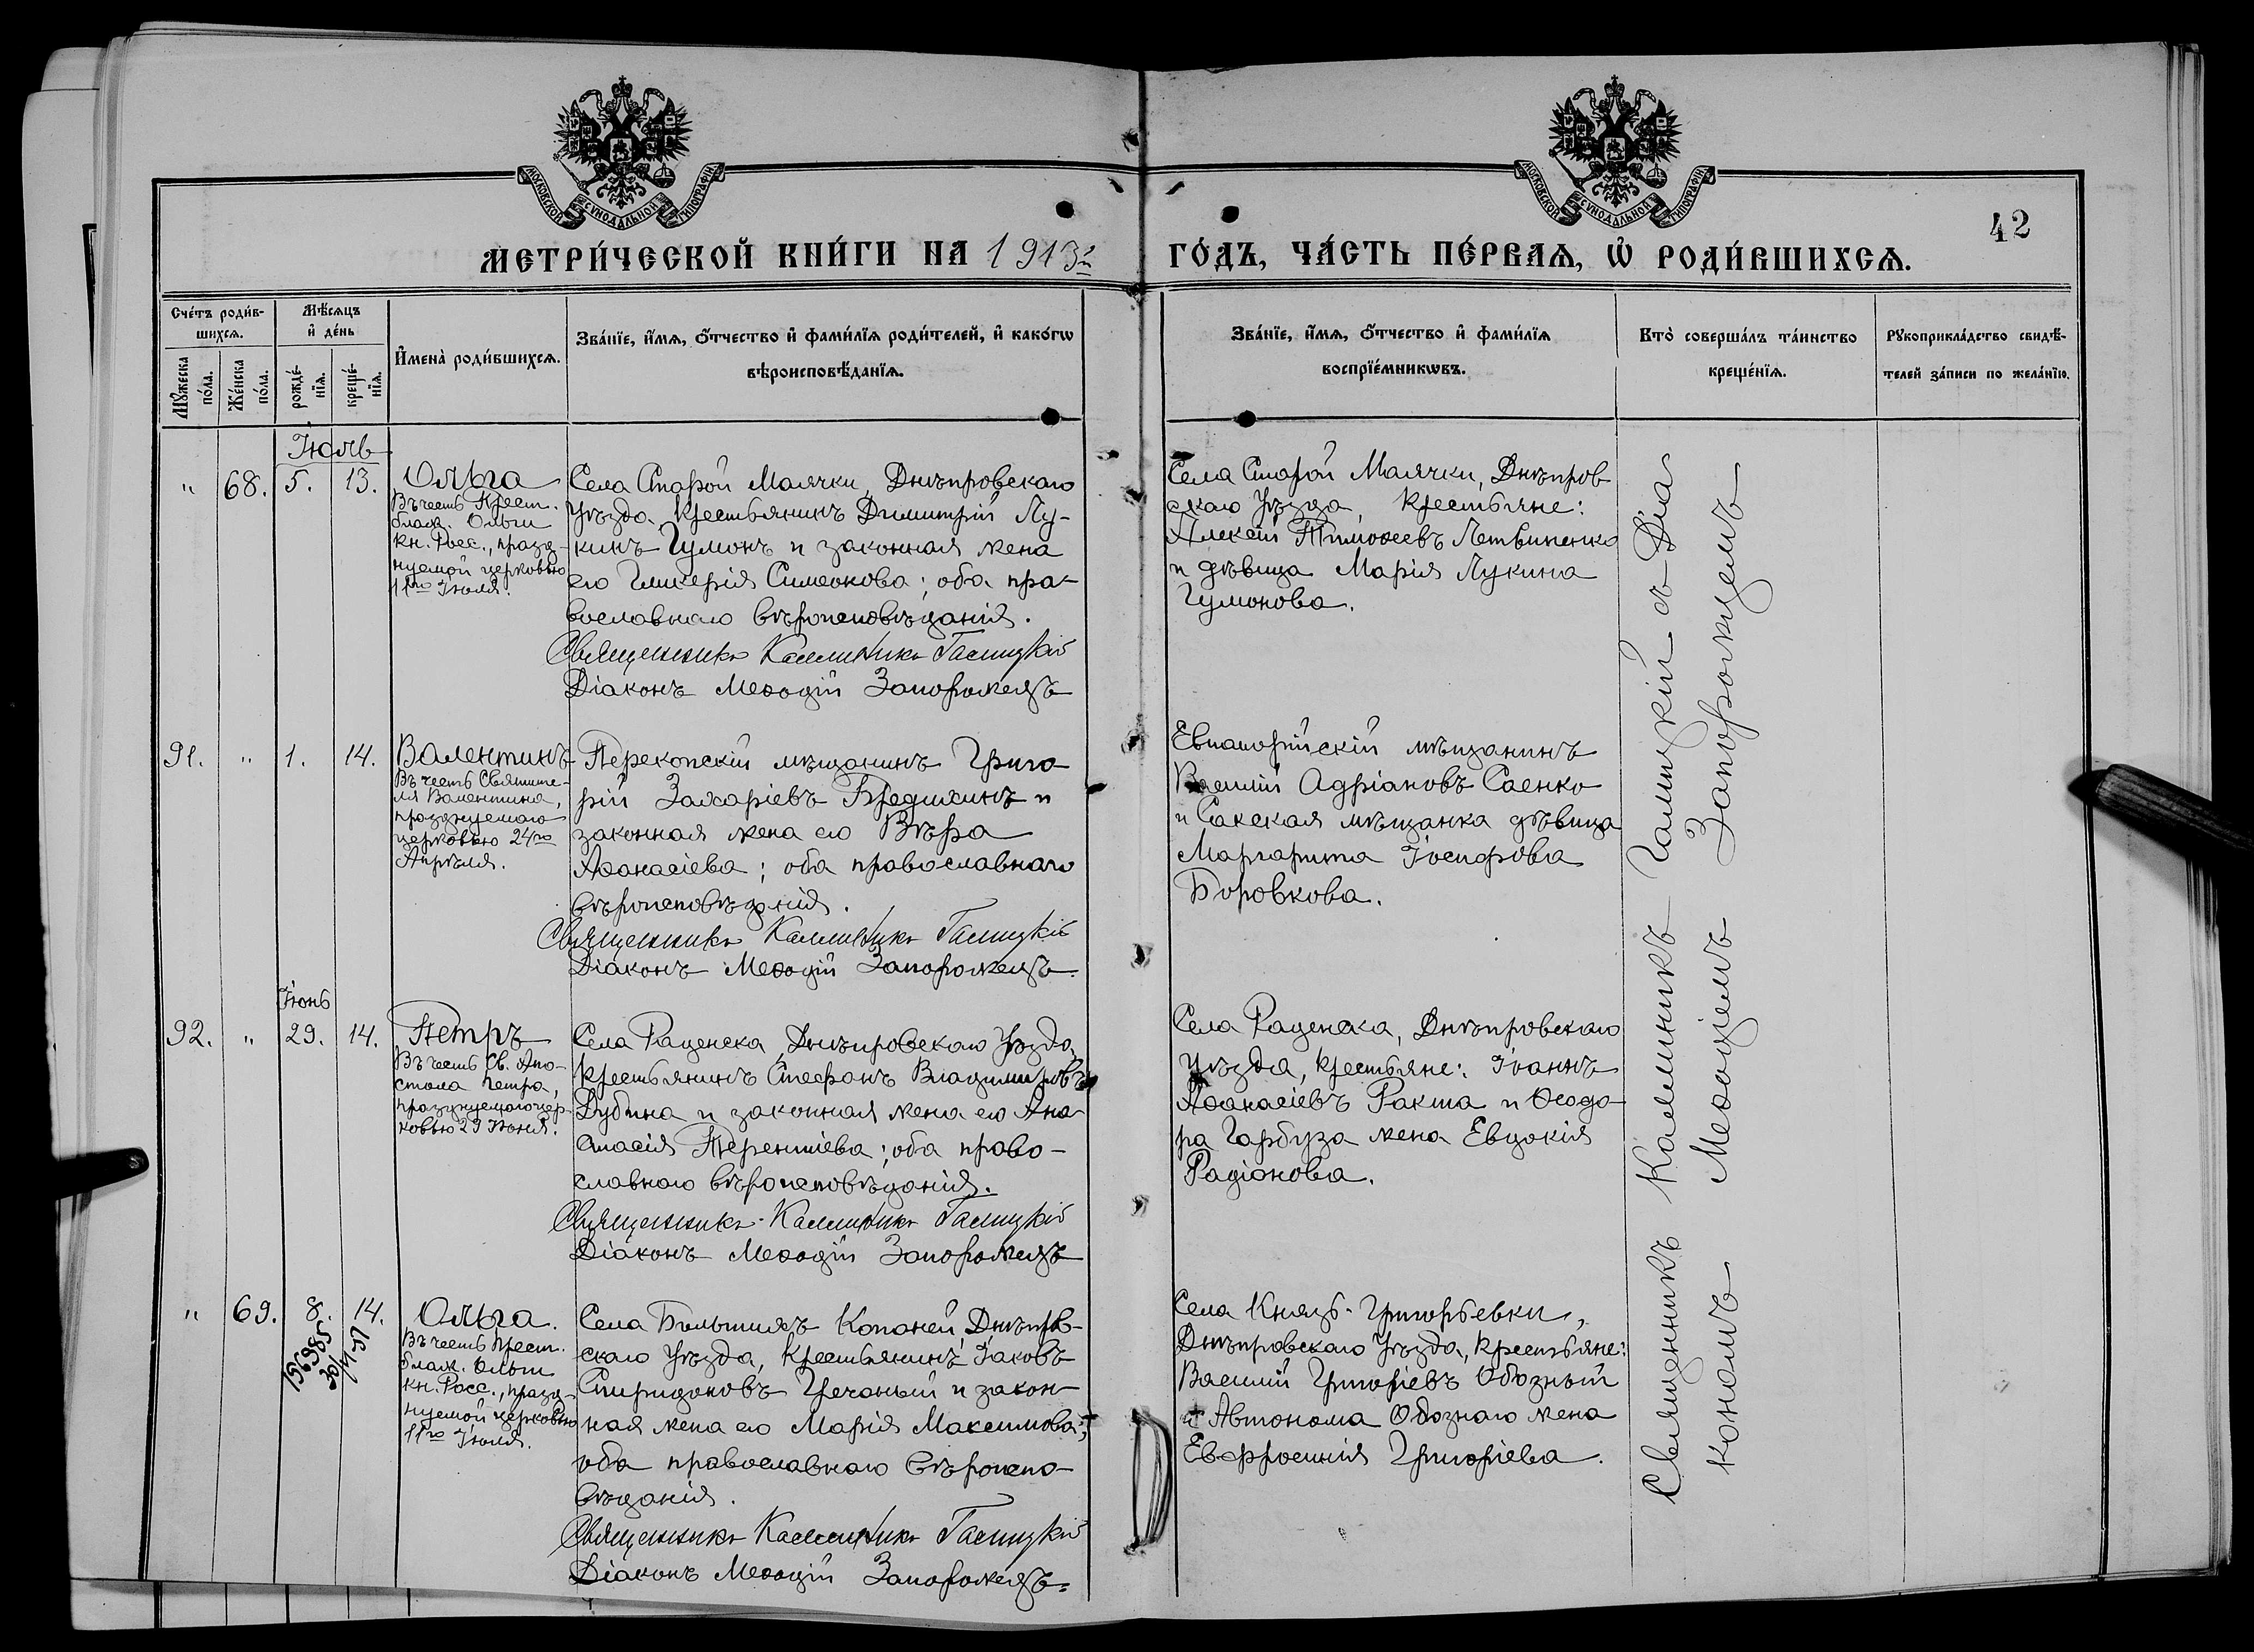 МОСКОВСКОЙ СѴНОДАЛЬНОЙ ТИПОГРАФІИ
МОСКОВСКОЙ СѴНОДАЛЬНОЙ ТИПОГРАФІИ
42
МЕТРИ́ЧЕСКОЙ КНИ́ГИ НА 1913 г.
ГО́ДЪ, ЧА́СТЬ ПЕ́РВАѦ, Ѡ҆ РОДИ́ВШИХСѦ.
Сче́тъ роди́в-
шихсѧ.
Мꙋ́жеска по́ла.
Же́нска по́ла.
Мѣ́сѧцъ
и҆ де́нь
рожде́-
нїѧ.
креще́-
нїѧ.
И҆мена̀ роди́вшихсѧ.
Зва́нїе, и҆́мѧ, ѻ҆́тчество и҆ фами́лїѧ роди́телей, и҆ како́гѡ
вѣроисповѣ́данїѧ.
Зва́нїе, и҆́мѧ, ѻ҆́тчество и҆ фами́лїѧ
воспрїе́мникѡвъ.
Кто̀ соверша́лъ та́инство
креще́нїѧ.
Рꙋкоприкла́дство свидѣ́-
телей за́писи по жела́нїю.
Іюль
" 68. 5. 13.
Ольга
Въ честь Крест.
благ. Ольги
кн. Росс., празд-
нуемой церковью
11го Іюля.
Села Старой Маячки, Днѣпровскаго
уѣзда, крестьянинъ Димитрій Лу-
кинъ Гумонъ и законная жена
его Гликерія Симеонова; оба пра-
вославнаго вѣроисповѣданія.
Священникъ Каллиникъ Галицкій
Діаконъ Меѳодій Запорожецъ
Села Старой Маячки, Днѣпров
скаго уѣзда, крестьяне:
Алексій Тимоѳеевъ Летвиненко
и дѣвица Марія Лукина
Гумонова.
91. " 1. 14.
Валентинъ
Въ честь Святите-
ля Валентина,
празднуемаго
церковью 24го
Апрѣля.
Перекопскій мѣщанинъ Григо
рій Захаріевъ Бредихинъ и
законная жена его Вѣра
Аѳанасіева; оба православнаго
вѣроисповѣданія.
Священникъ Каллиникъ Галицкій
Діаконъ Меѳодій Запорожецъ.
Евпаторійскій мѣщанинъ
Василій Адріановъ Саенко
и Сакская мѣщанка дѣвица
Маргарита Іосифова
Боровкова.
Іюнь
92. " 29. 14.
Петръ
Въ честь Св. Апо-
стола Петра,
празднуемаго цер-
ковью 29 Іюня.
Села Раденска, Днѣпровскаго уѣзда,
крестьянинъ Стефанъ Владимировъ
Дубина и законная жена его Ана-
стасія Терентіева; оба право-
славнаго вѣроисповѣданія.
Священникъ Каллиникъ Галицкій
Діаконъ Меѳодій Запорожецъ
Села Раденска, Днѣпровскаго
уѣзда, крестьяне: Іоаннъ
Аѳанасіевъ Ракша и Ѳеодо-
ра Гарбуза жена Евдокія
Радіонова.
" 69. 8. 14.
156985
30/VI-51
Ольга.
Въ честь Крест.
благ. Ольги
кн. Росс., празд-
нуемой церковью
11го Іюля.
Села Большихъ Копаней, Днѣпров-
скаго уѣзда, крестьянинъ Іаковъ
Спиридоновъ Гречаный и закон-
ная жена его Марія Максимова;
оба православнаго вѣроиспо-
вѣданія.
Священникъ Каллиникъ Галицкій
Діаконъ Меѳодій Запорожецъ.
Села Князь-Григорьевки,
Днѣпровскаго уѣзда, крестьяне:
Василій Григоріевъ Обозный
и Автонома Обознаго жена
Евфросинія Григоріева.
Священникъ Каллиникъ Галицкій съ Діа
кономъ Меѳодіемъ Запорожцемъ